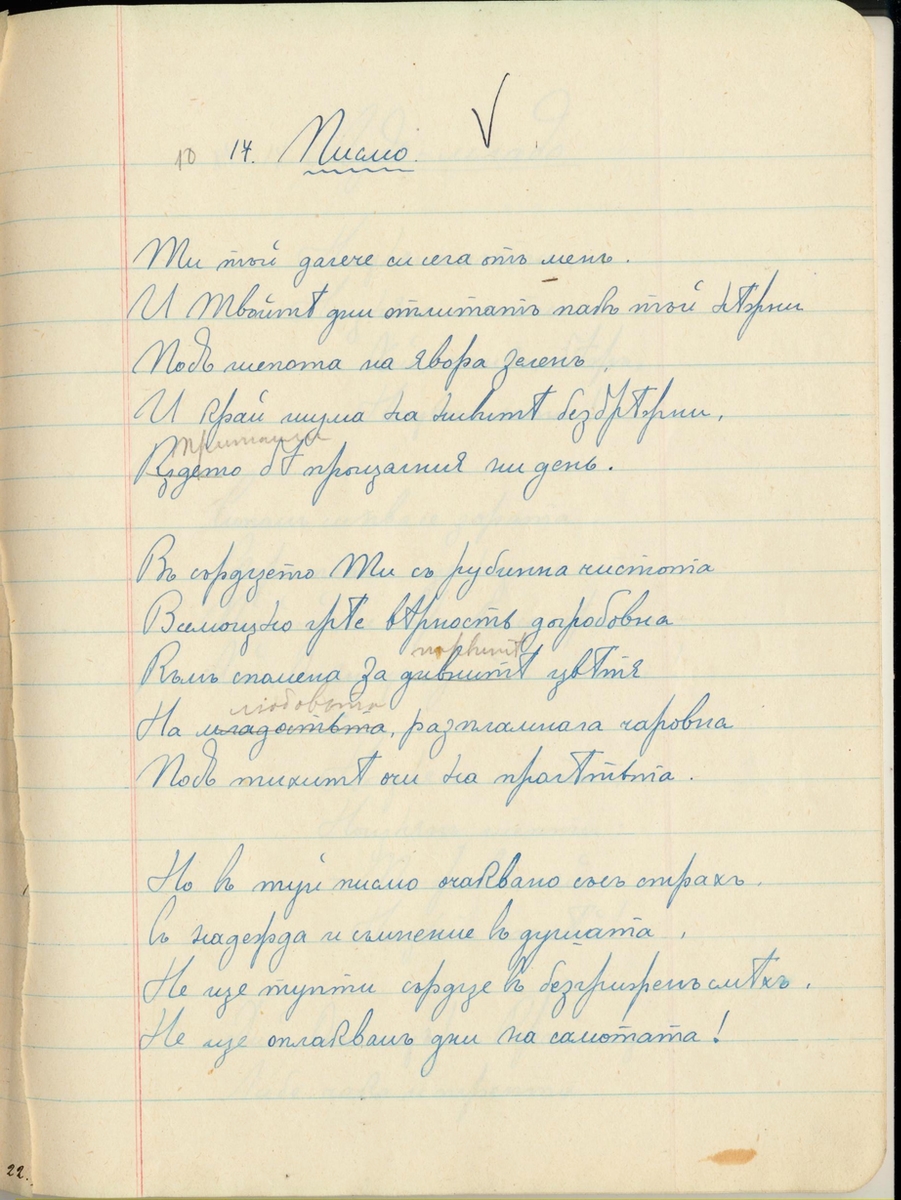 10 14. Писмо.
Ти тъй далече си сега отъ менъ.
И Твойтѣ дни отлитатъ пакъ тъй нѣжни
Подъ шепота на явора зеленъ,
И край шума на нивитѣ безбрѣжни,
притаили
Кждето бѣ прощалния ни день.
Въ сърдцето Ти съ рубинна чистота
Всемощно грѣе вѣрность догробовна
първитѣ
Къмъ спомена за дивнитѣ цвѣтя
любовьта
На младостьта, разпламнала чаровна
Подъ тихитѣ очи на пролѣтьта.
Но въ туй писмо очаквано съсъ страхъ,
Съ надежда и съмнение въ душата,
Не ще тупти сърдце въ безгриженъ смѣхъ,
Не ще оплаквашъ дни на самотата!
22.